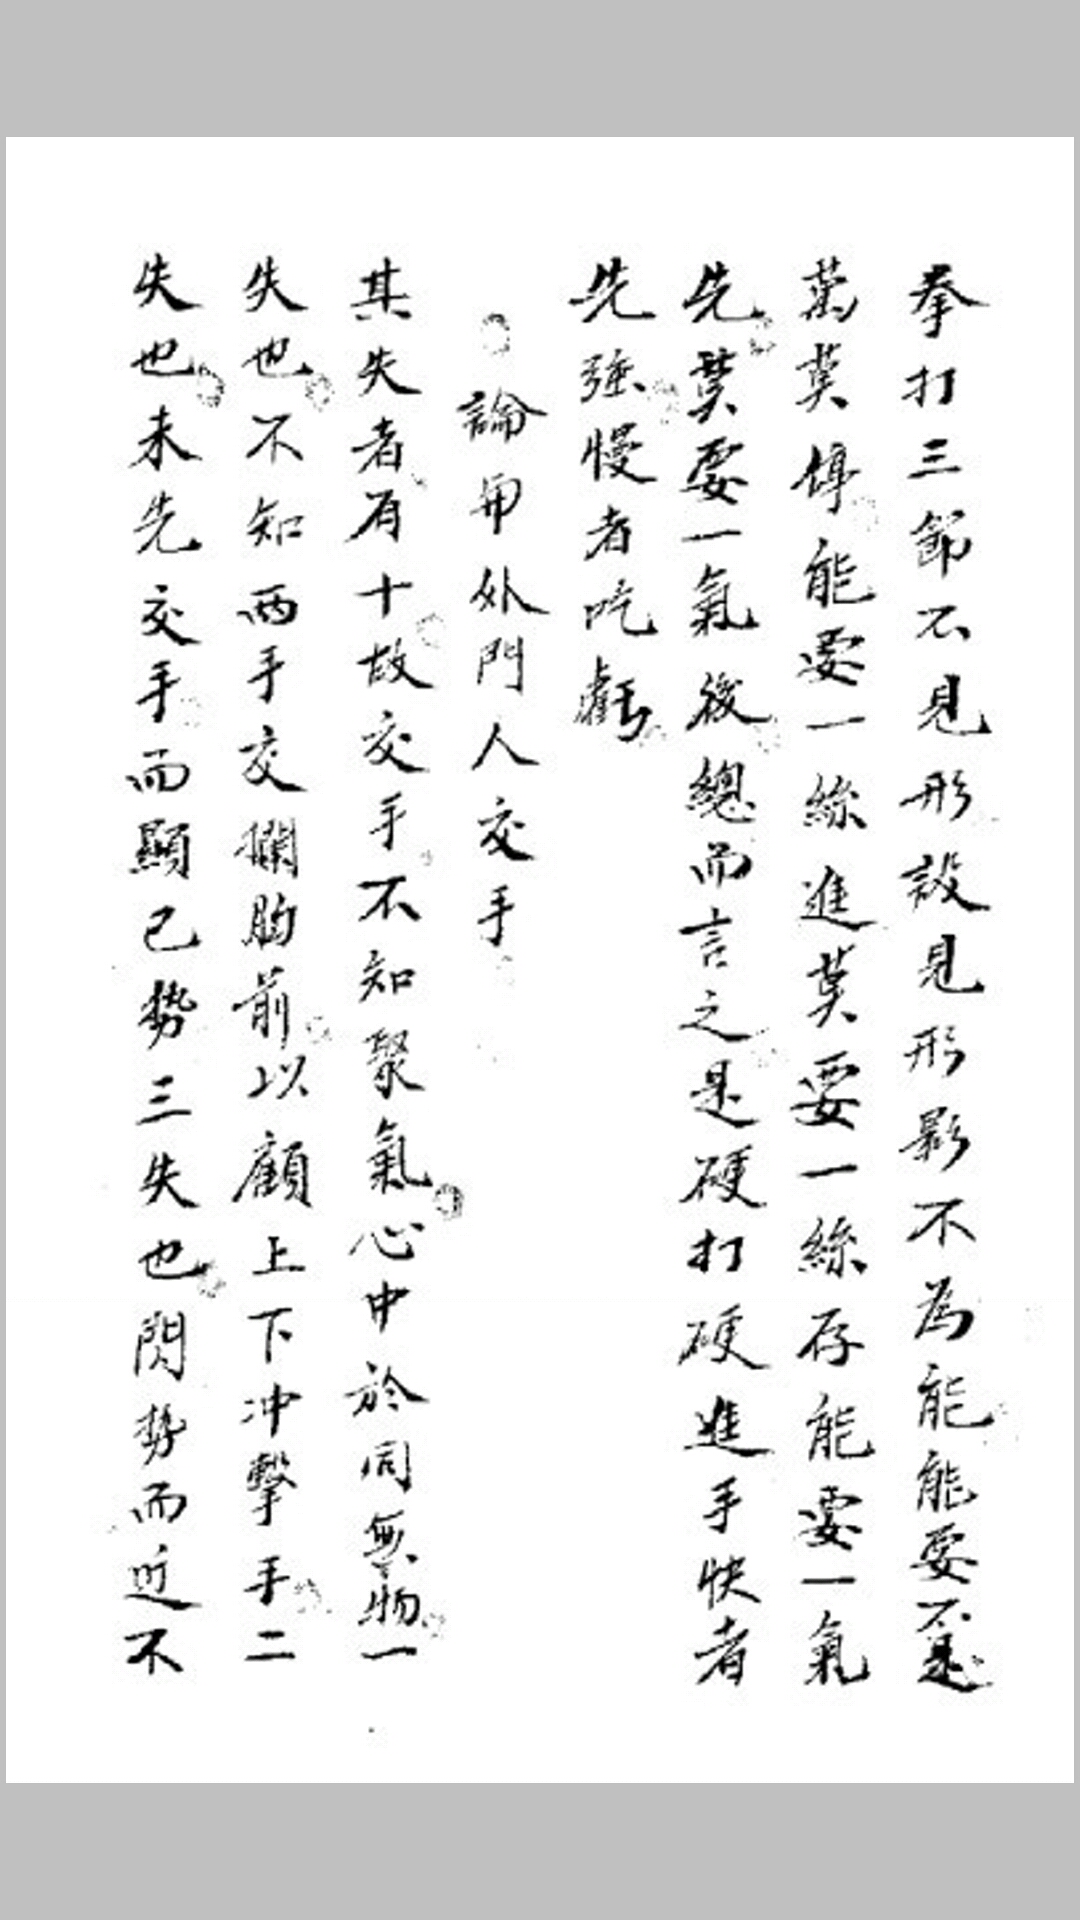 拳打三節不見形設見形影不為能能要不是
萬莫停能要一絲進莫要一絲存能要一氣
先莫要一氣後總而言之是硬打硬進手快者
先強慢者吃虧
論用外門人交手
其失者有十故交手不知聚氣心中於同無物一
失也不知兩手交攔胸前以顧上下冲擊手二
失也未先交手而顯己勢三失也閃勢而近不